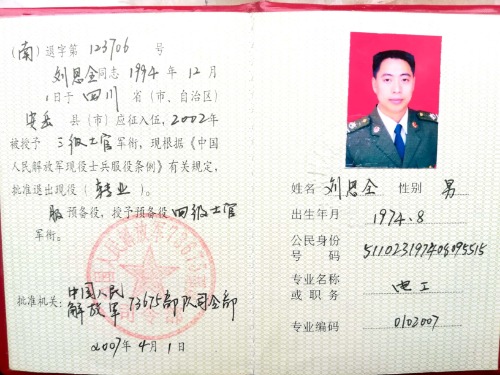 (南)退字第 123706 号
刘恩全同志 1994 年 12 月
1日于 四川 省(市、自治区)
安岳 县(市)应征入伍,2002年
被授予 三级士官 军衔,现根据《中国
人民解放军现役士兵服役条例》有关规定,
批准退出现役(转业)。
服 预备役,授予预备役 四级士官
军衔。
批准机关:中国人民解放军 73675部队司令部
2007年 4月 1日
姓名 刘恩全 性别 男
出生年月 1974.8
公民身份号码 511023197408095515
专业名称或职务 电工
专业编码 0102007